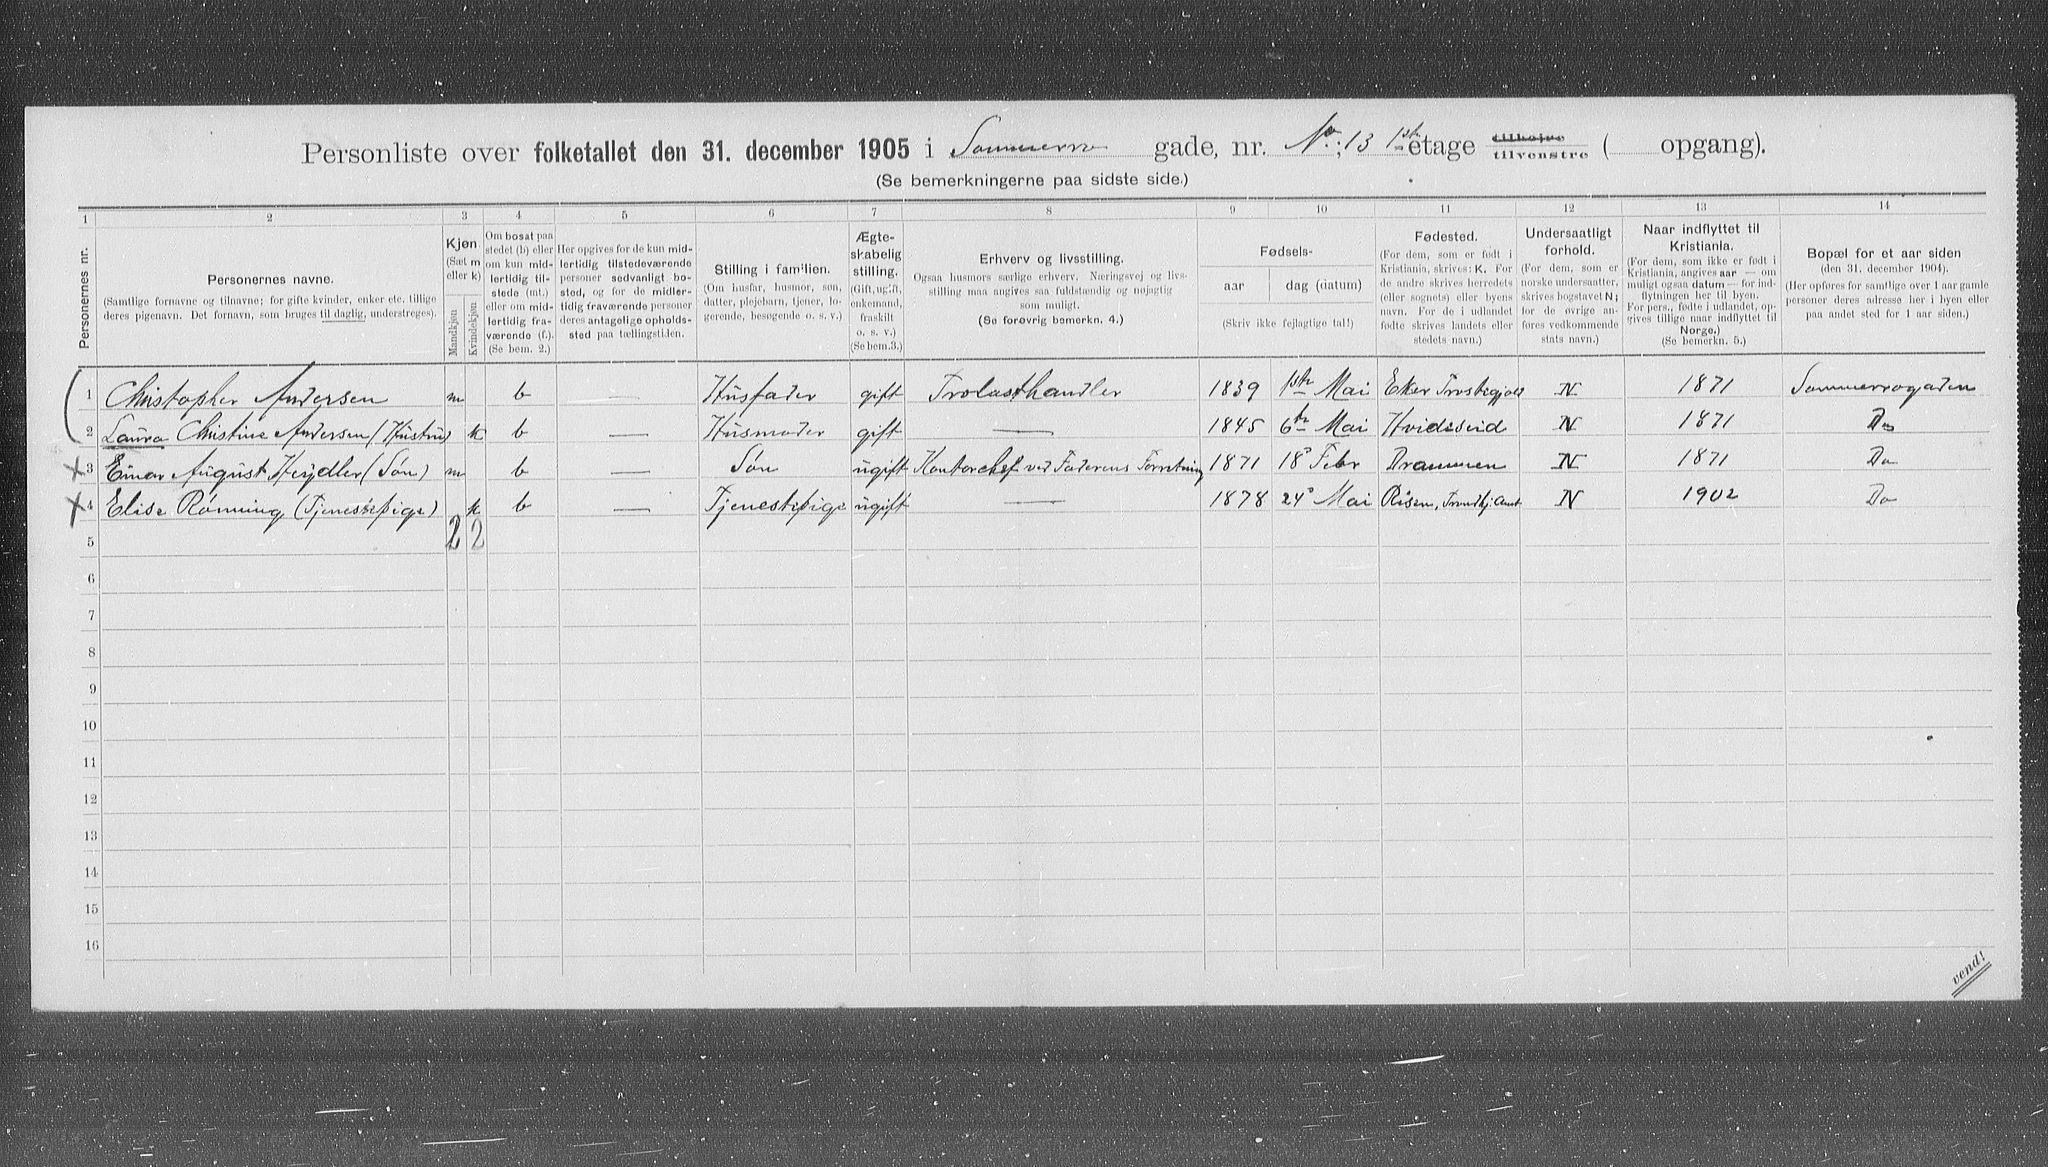 Personliste over folketallet den 31. december 1905 i Sommerro gade, nr. No. 13 1ste etage tilhøjre tilvenstre ( opgang).
(Se bemerkningerne paa sidste side.)
1 2 3 4 5 6 7 8 9 10 11 12 13 14
Personernes nr.
Personernes navne.
(Samtlige fornavne og tilnavne; for gifte kvinder, enker etc. tillige
deres pigenavn. Det fornavn, som bruges til daglig, understreges).
Kjøn
(Sæt m
eller k)
Mandkjøn
Kvindekjøn
Om bosat paa
stedet (b) eller
om kun mid-
lertidig til-
stede (mt.)
eller om mid-
lertidig fra-
værende (f.).
(Se bem. 2.)
Her opgives for de kun mid-
lertidig tilstedeværende
personer sedvanlig bo-
sted, og for de midler-
tidig fraværende personer
deres antagelige opholds-
sted paa tællingstiden.
Stilling i familien.
(Om husfar, husmor, søn,
datter, plejebarn, tjener, lo-
gerende, besøgende o. s. v.)
Ægte-
skabelig
stilling.
(Gift, ugift,
enkemand,
fraskilt
o. s. v.)
(Se bem.3.)
Erhverv og livsstilling.
Ogsaa husmors særlige erhverv. Næringsvej og livs-
stilling maa angives saa fuldstændig og nøjagtig
som muligt.
(Se forøvrig bemerkn. 4.)
Fødsels-
aar
dag (datum)
(Skriv ikke fejlagtige tal!)
Fødested.
(For dem, som er født i
Kristiania, skrives: K. For
de andre skrives herredets
(eller sognets) eller byens
navn. For de i udlandet
fødte skrives landets eller
stedets navn.)
Undersaatligt
forhold.
(For dem, som er
norske undersaatter,
skrives bogstavet N;
for de øvrige an-
føres vedkommende
stats navn.)
Naar indflyttet til
Kristiania.
(For dem, som ikke er født i
Kristiania, angives aar — om
muligt ogsaa datum — for ind-
flytningen her til byen.
For pers., fødte i udlandet, op-
gives tillige naar indflyttet til
Norge.)
(Se bemerkn. 5.)
Bopæl for et aar siden
(den 31. december 1904).
(Her opføres for samtlige over 1 aar gamle
personer deres adresse her i byen eller
paa andet sted for 1 aar siden.)
1 Christopher Andersen m b — Husfader gift Trælasthandler 1839 1ste Mai Eker N 1871 Sommerrogaden
2 Laura Christine Andersen (Hustru) k b — Husmoder gift — 1845 6te Mai Hvideseid N 1871 Do
3 Einar August Heydler (Søn) m b — Søn ugift Kontorchef ved Faderens Forretning 1871 18 Febr Drammen N 1871 Do
4 Elise Rønning (Tjenestepige) k b — Tjenestepige ugift — 1878 24 Mai Risen, Trondhj. Amt N 1902 Do
2 2
5
6
7
8
9
10
11
12
13
14
15
16
vend!